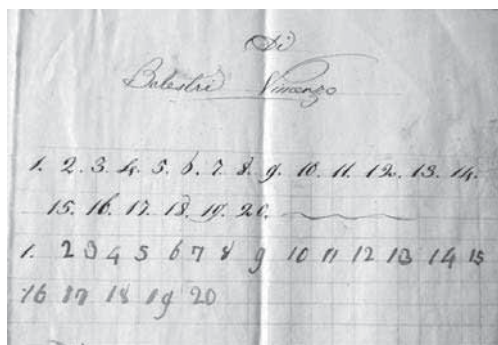 Di
Balestri Vincenzo
1. 2. 3. 4. 5. 6. 7. 8. 9. 10. 11. 12. 13. 14.
15. 16. 17. 18. 19. 20.
1. 2 3 4 5 6 7 8 9 10 11 12 13 14 15
16 17 18 19 20